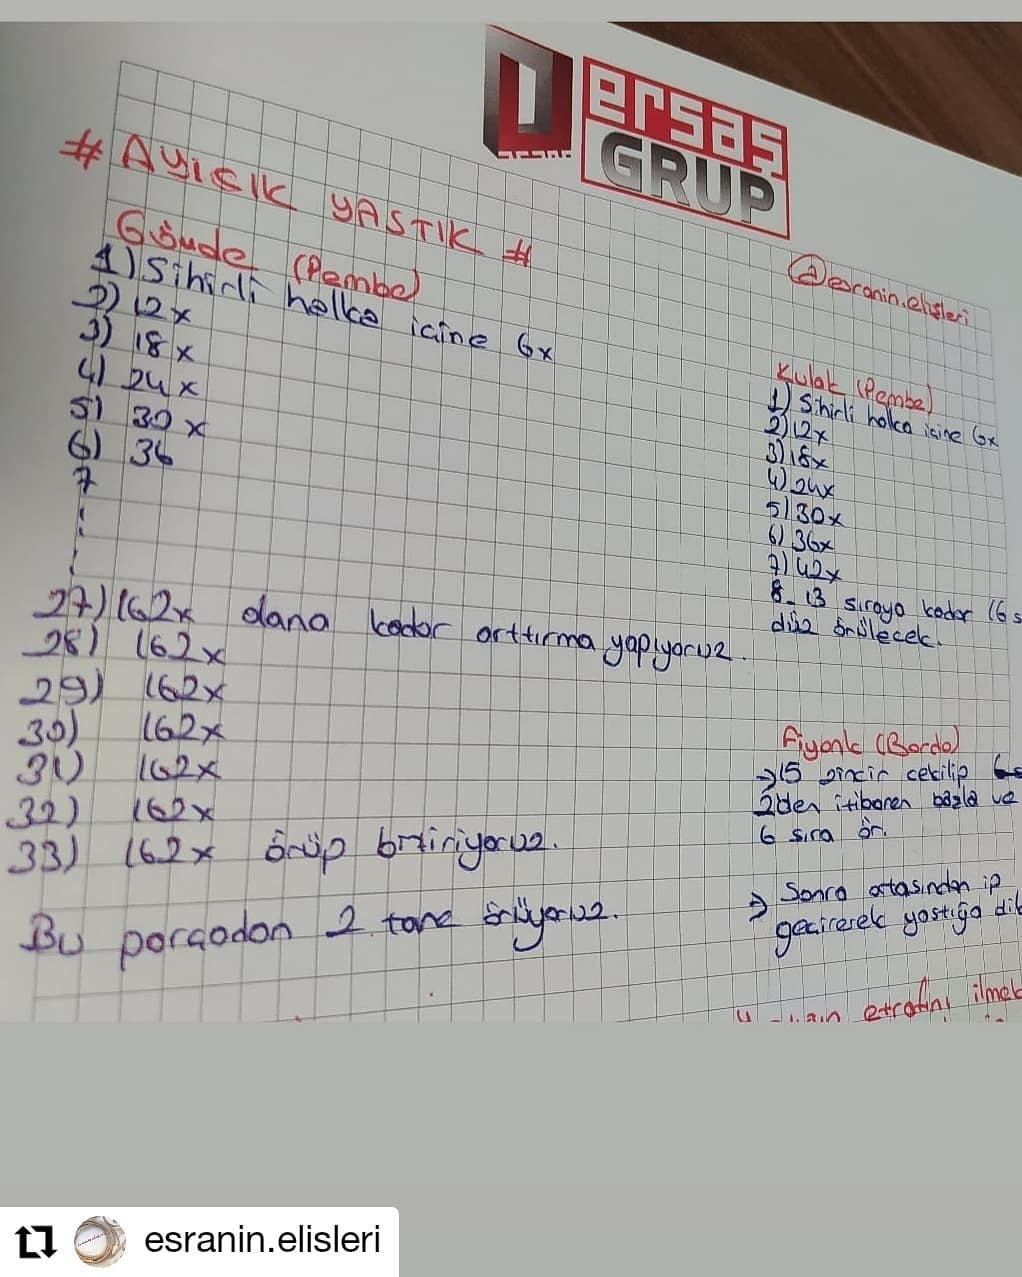 ersaş
GRUP
# AYICIK YASTIK #
@esranin.elişleri
Gövde (Pembe)
1) Sihirli halka içine 6x
2) 12x
3) 18x
4) 24x
5) 30x
6) 36
7
27) 162x olana kadar arttırma yapıyoruz.
28) 162x
29) 162x
30) 162x
31) 162x
32) 162x
33) 162x örüp bitiriyoruz.
Bu parçadan 2 tane örüyoruz.
Kulak (Pembe)
1) Sihirli halka içine 6x
2) 12x
3) 18x
4) 24x
5) 30x
6) 36x
7) 42x
8-13 sıraya kadar (6 s
düz örülecek.
Fiyonk (Bordo)
→ 15 zincir çekilip
2den itibaren başla ve
6 sıra ör.
→ Sonra ortasından ip
geçirerek yastığa dik
etrafını ilmek
esranin.elisleri